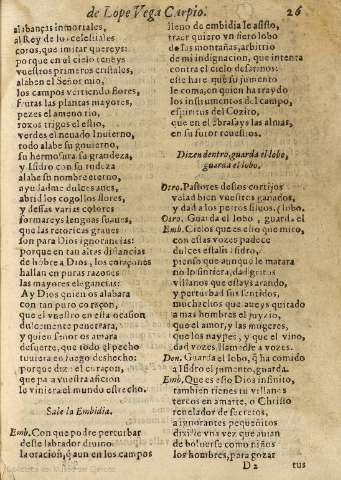 de Lope Vega Carpio. 26
alabanças inmortales,
al Rey de los celestiales
coros, que imitar quereys:
porque en el cielo teneys
vuestros primeros cristales,
alaben el Señor mio,
los campos vertiendo flores,
frutas las plantas mayores,
pezes el ameno rio,
roxos trigos el estio,
verdes el neuado Inuierno,
todo alabe su gouierno,
su hermosura su grandeza,
y Isidro con su rudeza
alabe su nombre eterno,
ayudadme dulces aues,
abrid los cogollos flores,
y dessas varias colores
formareys lenguas suaues,
que las retoricas graues
son para Dios ignorancias:
porque en tan altas distancias
de hõbre a Dios, los coraçones
hallan en puras razones
las mayores elegancias:
Ay Dios quien os alabara
con tan puro coraçon,
que el vuestro en esta ocasion
dulcemente penetrara,
y quien señor os amara
de suerte, que todo el pecho
tuuiera en fuego deshecho:
porque diz que el coraçon,
que passa vuestra aficion
le viniera el mundo estrecho.
Sale la Embidia.
Emb. Con que podre perturbar
deste labrador diuino
la oracion, q̃ aun en los campos
lleno de embidia le assisto,
traer quiero vn fiero lobo
destas montañas, arbitrio
de mi indignacion, que intenta
contra el cielo desatinos:
este hare que su jumento
le coma, en quien ha traydo
los instrumentos del campo,
espiritus del Cozito,
que en el abrasays las almas,
en su furor reuestios.
Dizen dentro, guarda el lobo,
guarda el lobo.
Otro. Pastores destos cortijos
velad bien vuestros ganados,
y dad a los perros siluos, lobo.
Otro. Guarda el lobo, guarda el
Emb. Cielos que es esto que miro,
con estas vozes padece
dulces estasis Isidro,
pienso que aunque le matara
no lo sintiera, dad gritos
villanos que estays arando,
y perturbad sus sentidos,
muchachos que aueys quitado
a mas hombres el juyzio,
que el amor, y las mugeres,
que los naypes, y que el vino,
dad vozes, llamadle a vozes.
Den. Guarda el lobo, q̃ ha comido
a Isidro el jumento, guarda.
Emb. Que es esto Dios infinito,
tambien tienes tu villanos
tercos en amarte, o Christo
reuelador de secretos,
a ignorantes pequeñitos
dixiste vna vez que auian
de boluerse como niños
los hombres, para gozar
D 2 tus